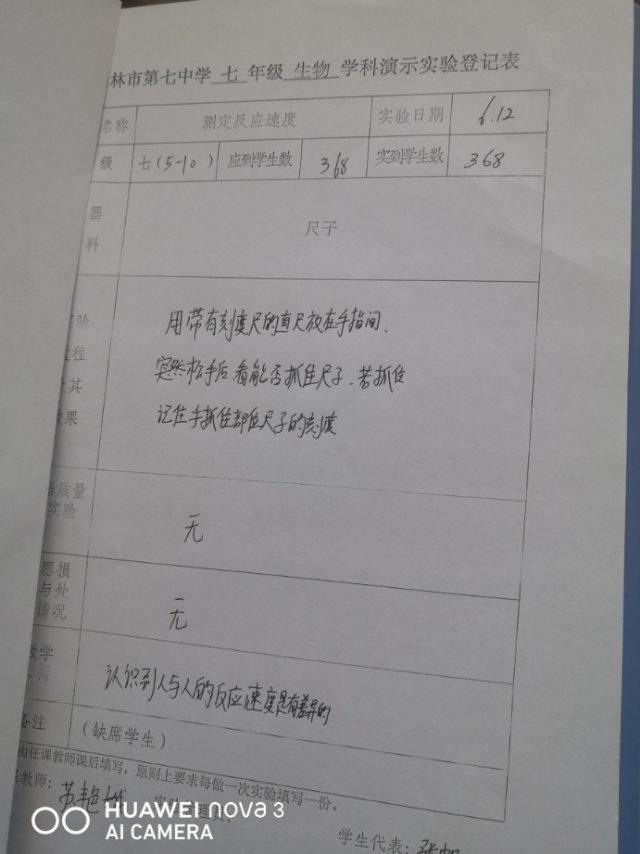 林市第七中学 七 年级 生物 学科演示实验登记表
名称 测定反应速度 实验日期 6.12
级 七(5-10) 应到学生数 368 实到学生数 368
器
料
尺子
验
程
其
效果
用带有刻度尺的直尺放在手指间.
突然松手后看能否抓住尺子.若抓住
记住手抓住部位尺子的刻度
质量
实验
无
器损
与处
情况
无
教学
认识到人与人的反应速度是有差异的
备注 (缺席学生)
由任课教师课后填写，原则上要求每做一次实验填写一份。
教师: 苏艳
学生代表:
HUAWEI nova 3
AI CAMERA